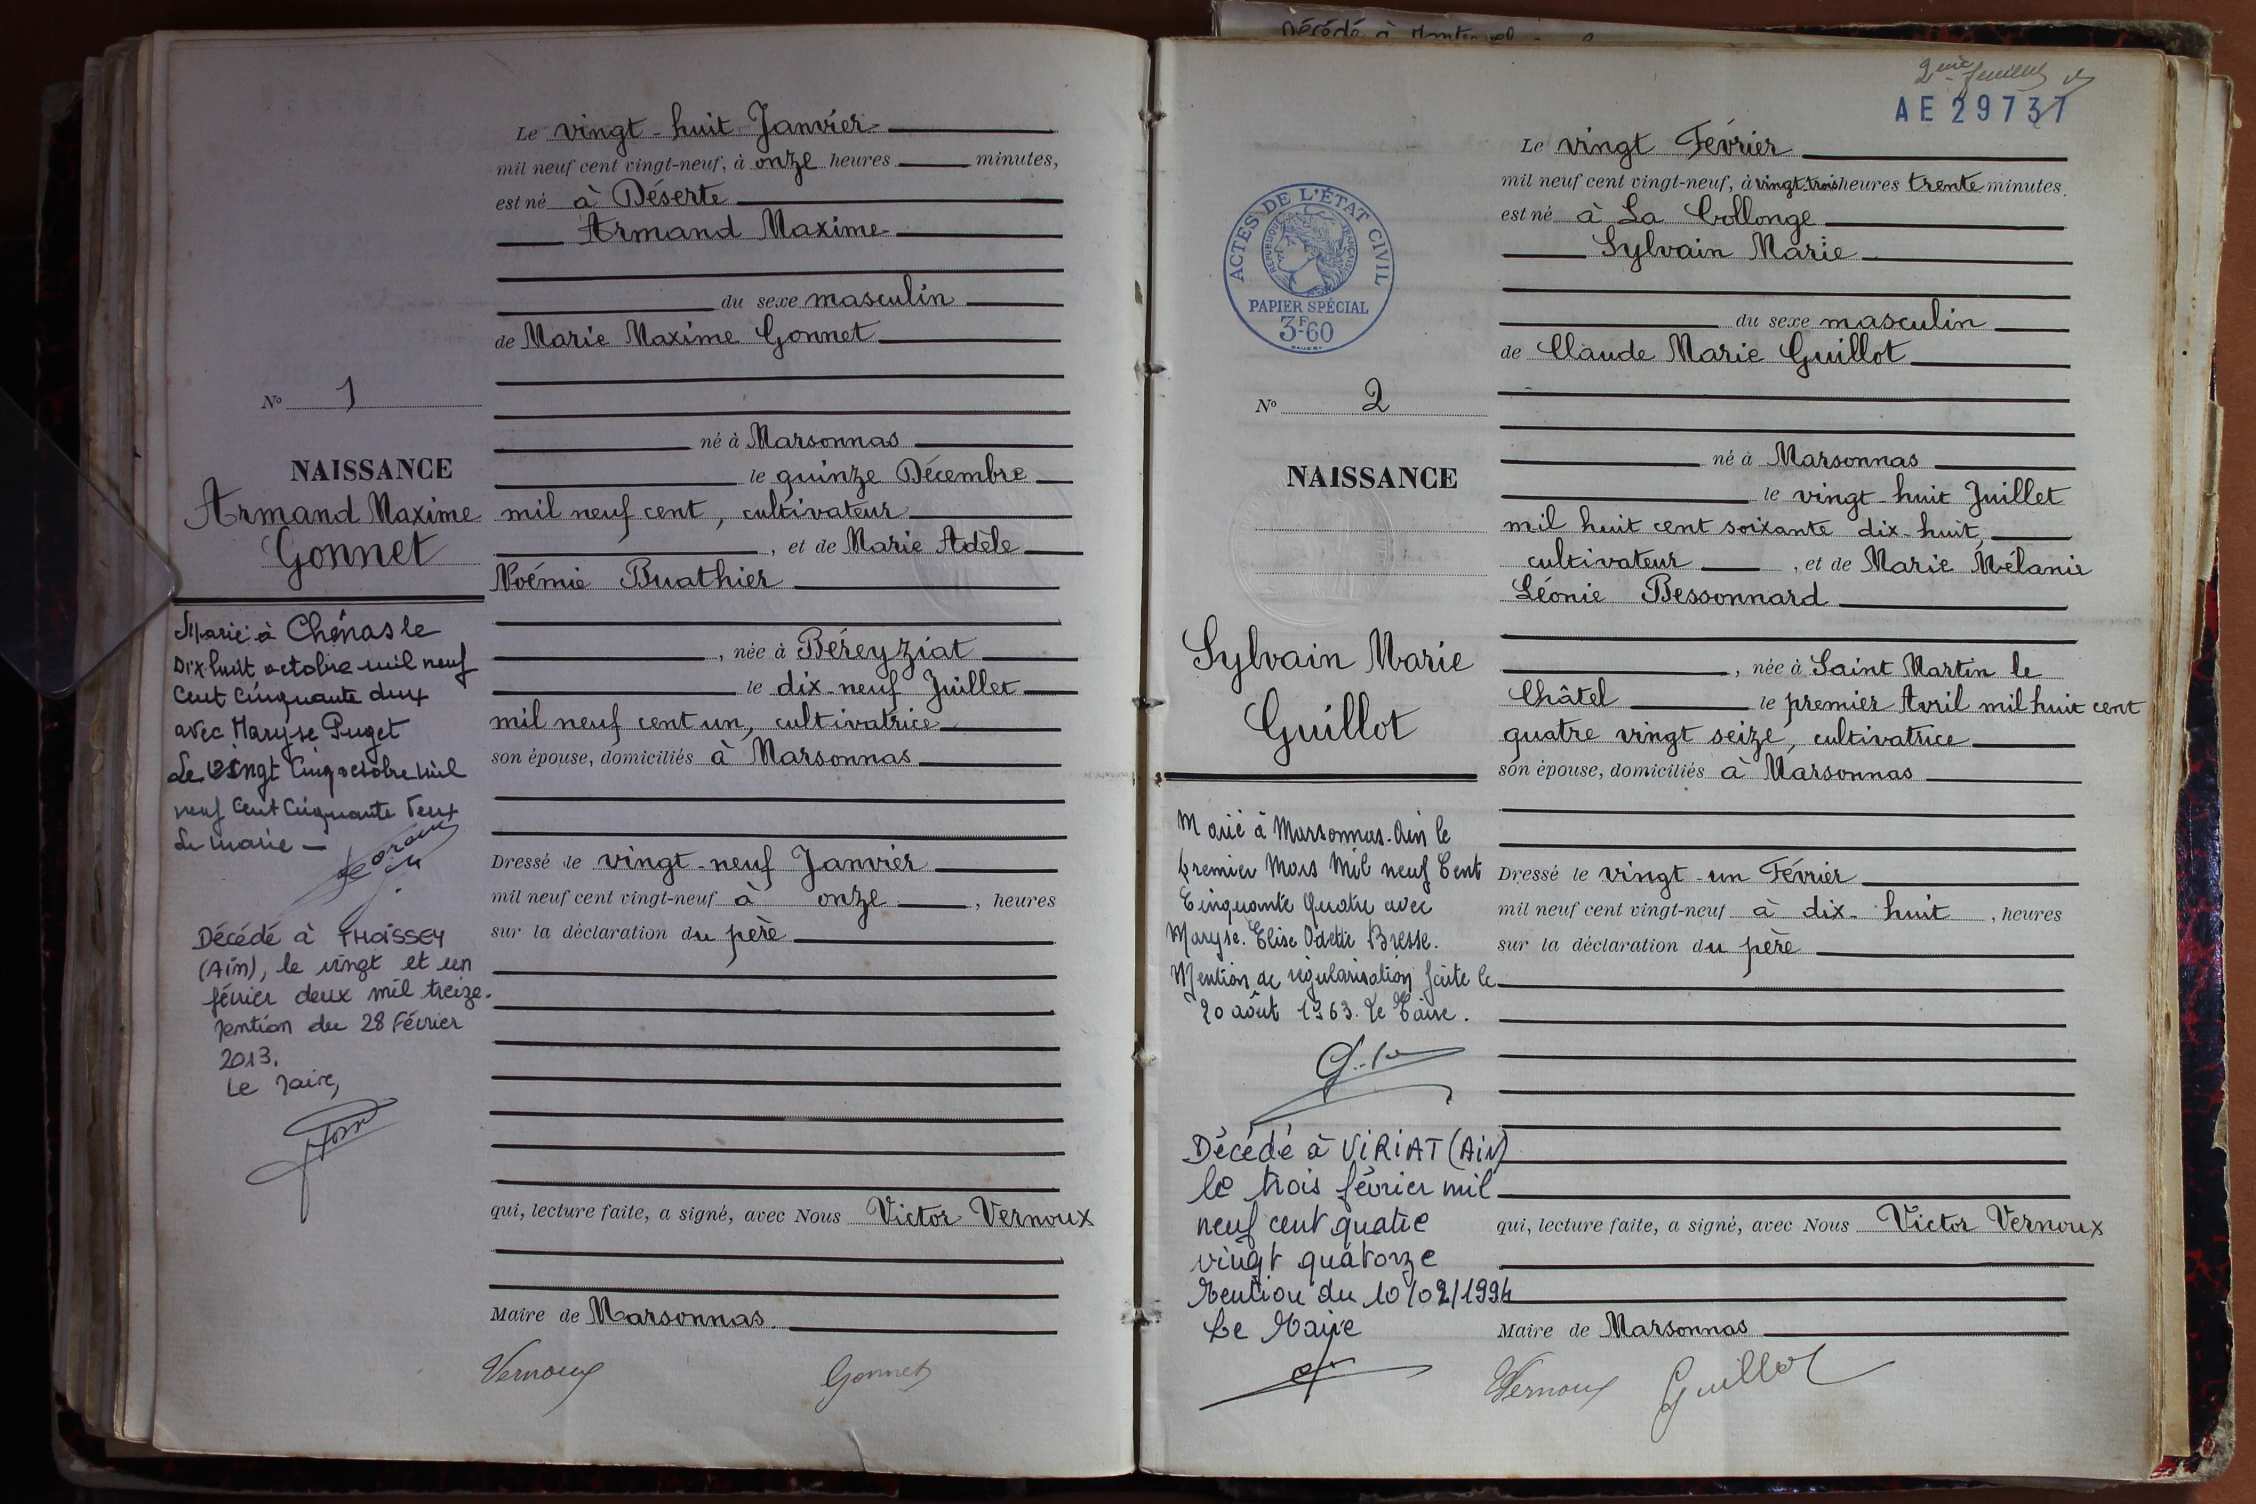 Le vingt-huit Janvier
mil neuf cent vingt-neuf, à onze heures minutes,
est né à Déserte
Armand Maxime
du sexe masculin
de Marie Maxime Gonnet
né à Marsonnas
le quinze Décembre
mil neuf cent, cultivateur
, et de Marie Adèle
Noémie Buathier
, née à Béreyziat
le dix-neuf Juillet
mil neuf cent un, cultivatrice
son épouse, domiciliés à Marsonnas
Dressé le vingt-neuf Janvier
mil neuf cent vingt-neuf à onze , heures
sur la déclaration du père
qui, lecture faite, a signé, avec Nous Victor Vernoux
Maire de Marsonnas.
Vernoux Gonnet
No 1
NAISSANCE
Armand Maxime
Gonnet
Marié à Chénas le
Dix huit octobre mil neuf
Cent Cinquante deux
avec Maryse Puget
Le vingt Cinq octobre mil
neuf Cent Cinquante Deux
Le Maire -
Décédé à THOISSEY
(Ain), le vingt et un
février deux mil treize.
Mention du 28 Février
2013.
Le Maire,
Décédé à
2me
AE 29737
Le vingt Février
mil neuf cent vingt-neuf, à vingt-trois heures trente minutes.
est né à La Collonge
Sylvain Marie
du sexe masculin
de Claude Marie Guillot
né à Marsonnas
le vingt-huit Juillet
mil huit cent soixante dix-huit,
cultivateur , et de Marie Mélanie
Léonie Bessonnard
, née à Saint Martin le
Châtel le premier Avril mil huit cent
quatre vingt seize, cultivatrice
son épouse, domiciliés à Marsonnas
Dressé le vingt-un Février
mil neuf cent vingt-neuf à dix-huit , heures
sur la déclaration du père
qui, lecture faite, a signé, avec Nous Victor Vernoux
Maire de Marsonnas
Vernoux Guillot
ACTES DE L'ÉTAT CIVIL
RÉPUBLIQUE FRANÇAISE
PAPIER SPÉCIAL
3F60
No 2
NAISSANCE
Sylvain Marie
Guillot
Marié à Marsonnas-Ain le
premier Mars Mil neuf Cent
Cinquante Quatre avec
Maryse. Elise Odette Bresse.
Mention de régularisation faite le
20 août 1963. Le Maire.
Décédé à VIRIAT (Ain)
le trois février mil
neuf cent quatre
vingt quatorze
Mention du 10/02/1994
Le Maire